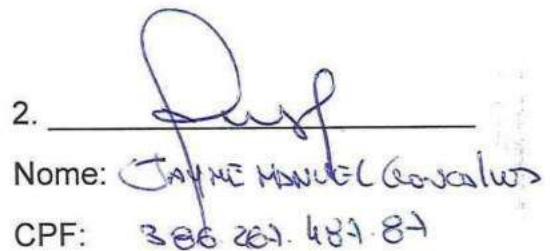 2.
Nome: JAYME MANUEL Goncalves
CPF: 386.267.487.87